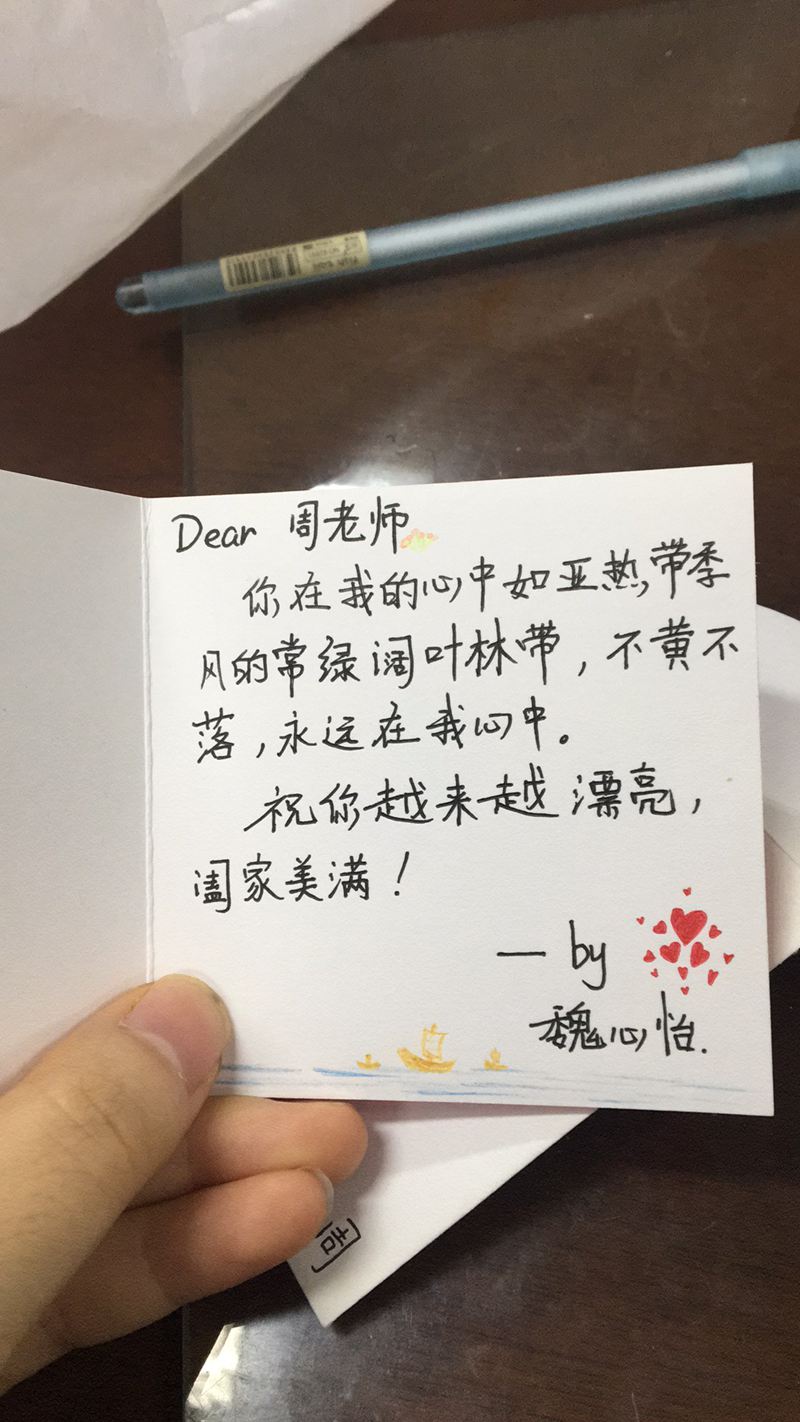 Dear 周老师
你在我的心中如亚热带季
风的常绿阔叶林带，不黄不
落，永远在我心中。
祝你越来越漂亮，
阖家美满！
— by
魏心怡.